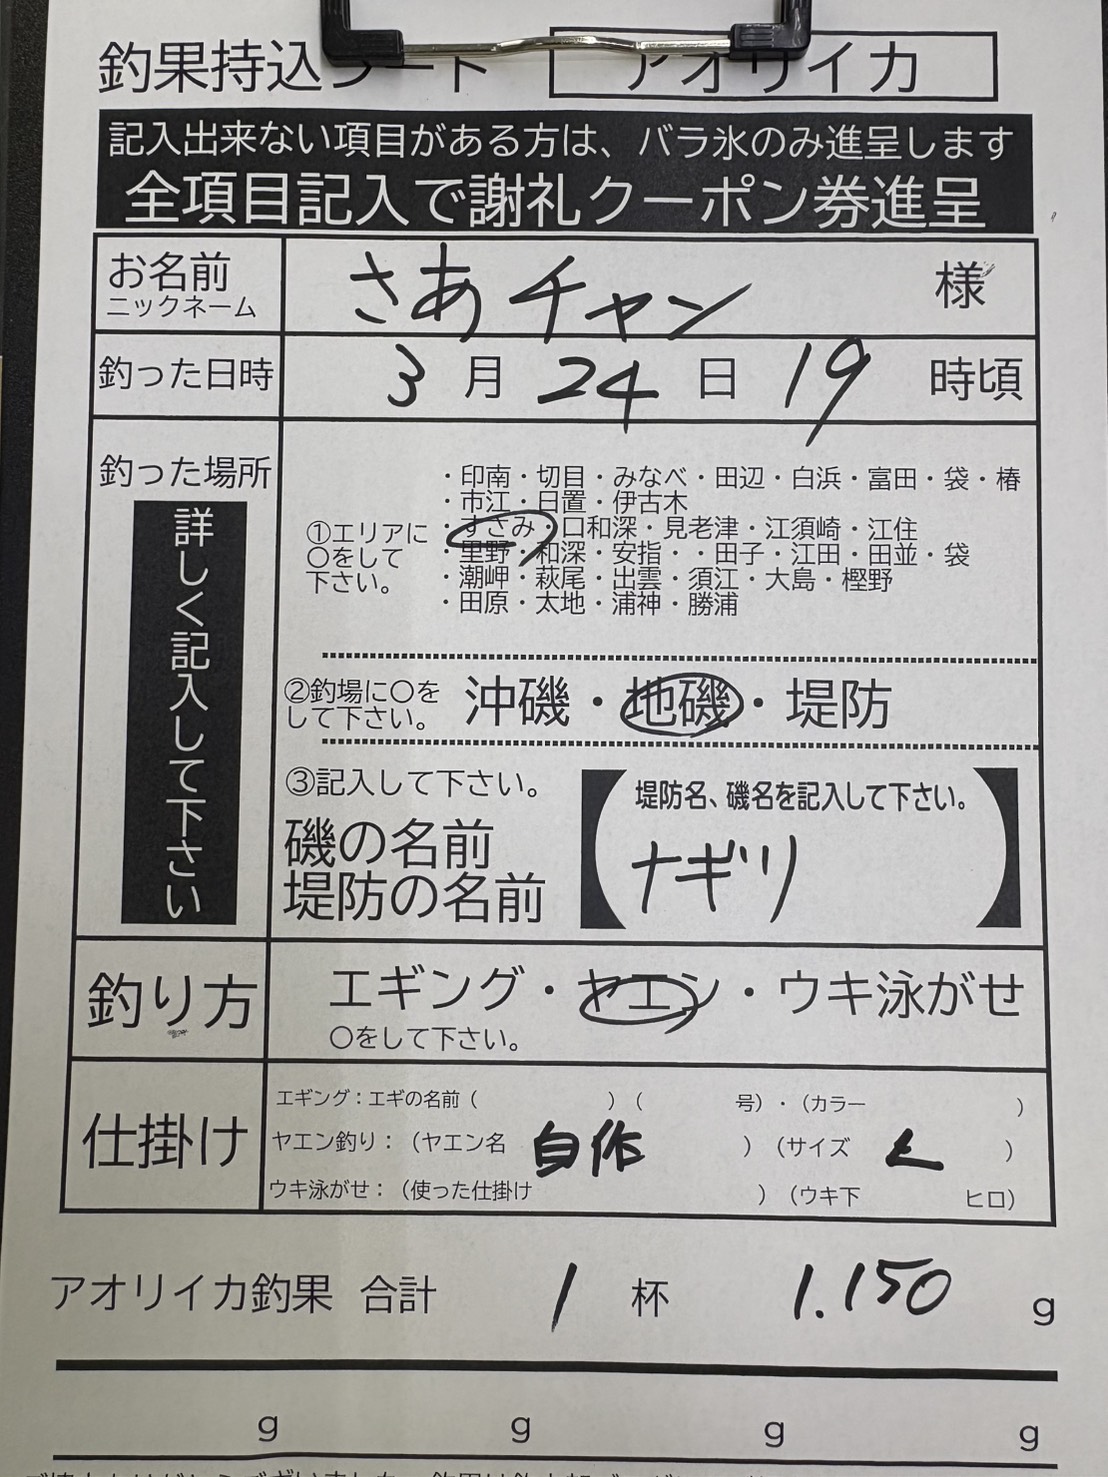 釣果持込シート アオリイカ
記入出来ない項目がある方は、バラ氷のみ進呈します
全項目記入で謝礼クーポン券進呈
お名前
ニックネーム
さあチャン 様
釣った日時 3月24日19時頃
釣った場所
詳しく記入して下さい
①エリアに
〇をして
下さい。
・印南・切目・みなべ・田辺・白浜・富田・袋・椿
・市江・日置・伊古木
・すさみ・口和深・見老津・江須崎・江住
・里野・和深・安指・・田子・江田・田並・袋
・潮岬・萩尾・出雲・須江・大島・樫野
・田原・太地・浦神・勝浦
②釣場に〇を
して下さい。
沖磯・地磯・堤防
③記入して下さい。
磯の名前
堤防の名前
【堤防名、磯名を記入して下さい。
ナギリ】
釣り方
エギング・ヤエン・ウキ泳がせ
〇をして下さい。
仕掛け
エギング：エギの名前（ ）（ 号）・（カラー ）
ヤエン釣り：（ヤエン名 自作 ）（サイズ L ）
ウキ泳がせ：（使った仕掛け ）（ウキ下 ヒロ）
アオリイカ釣果 合計 1杯 1.150g
g g g g